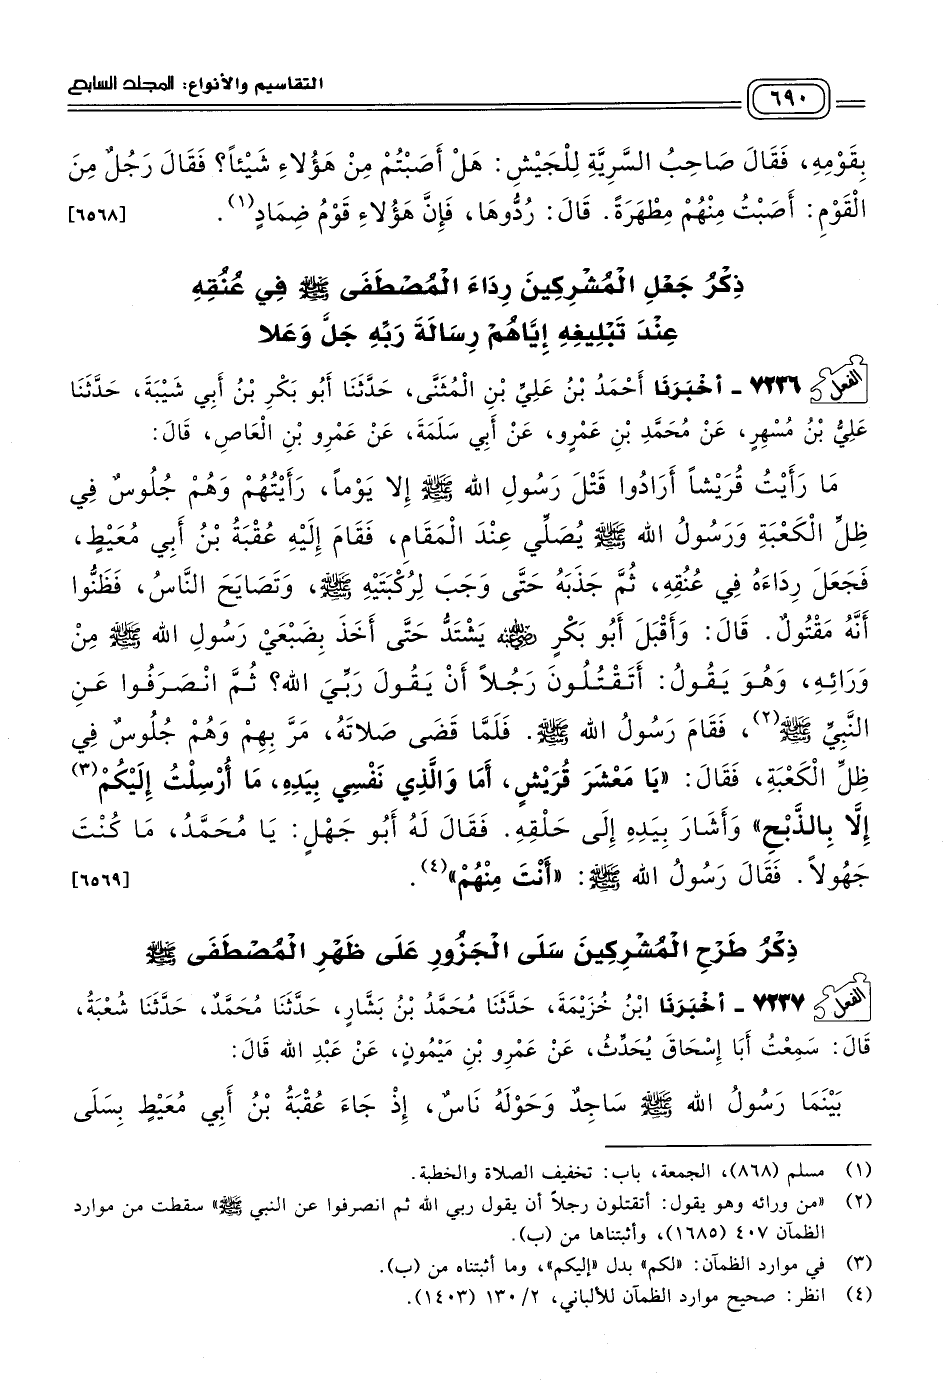 التقاسيم والأنواع: المجلد السابع
٦٩٠
بِقَوْمِهِ، فَقَالَ صَاحِبُ السَّرِيَّةِ لِلْجَيْشِ: هَلْ أَصَبْتُمْ مِنْ هَؤُلاءِ شَيْئاً؟ فَقَالَ رَجُلٌ مِنَ
الْقَوْمِ: أَصَبْتُ مِنْهُمْ مِطْهَرَةً. قَالَ: رُدُّوهَا، فَإِنَّ هَؤُلاءِ قَوْمُ ضِمَادٍ(١). [٦٥٦٨]
ذِكْرُ جَعْلِ الْمُشْرِكِينَ رِدَاءَ الْمُصْطَفَى ﷺ فِي عُنُقِهِ
عِنْدَ تَبْلِيغِهِ إِيَّاهُمْ رِسَالَةَ رَبِّهِ جَلَّ وَعَلا
الفعل ٧٢٣٦ - أَخْبَرَنَا أَحْمَدُ بْنُ عَلِيِّ بْنِ الْمُثَنَّى، حَدَّثَنَا أَبُو بَكْرِ بْنُ أَبِي شَيْبَةَ، حَدَّثَنَا
عَلِيُّ بْنُ مُسْهِرٍ، عَنْ مُحَمَّدِ بْنِ عَمْرٍو، عَنْ أَبِي سَلَمَةَ، عَنْ عَمْرِو بْنِ الْعَاصِ، قَالَ:
مَا رَأَيْتُ قُرَيْشاً أَرَادُوا قَتْلَ رَسُولِ الله ﷺ إِلا يَوْماً، رَأَيْتُهُمْ وَهُمْ جُلُوسٌ فِي
ظِلِّ الْكَعْبَةِ وَرَسُولُ الله ﷺ يُصَلِّي عِنْدَ الْمَقَامِ، فَقَامَ إِلَيْهِ عُقْبَةُ بْنُ أَبِي مُعَيْطٍ،
فَجَعَلَ رِدَاءَهُ فِي عُنُقِهِ، ثُمَّ جَذَبَهُ حَتَّى وَجَبَ لِرُكْبَتَيْهِ ﷺ، وَتَصَايَحَ النَّاسُ، فَظَنُّوا
أَنَّهُ مَقْتُولٌ. قَالَ: وَأَقْبَلَ أَبُو بَكْرٍ رضي الله عنه يَشْتَدُّ حَتَّى أَخَذَ بِضَبْعَيْ رَسُولِ الله ﷺ مِنْ
وَرَائِهِ، وَهُوَ يَقُولُ: أَتَقْتُلُونَ رَجُلاً أَنْ يَقُولَ رَبِّيَ الله؟ ثُمَّ انْصَرَفُوا عَنِ
النَّبِيِّ ﷺ(٢)، فَقَامَ رَسُولُ الله ﷺ. فَلَمَّا قَضَى صَلاتَهُ، مَرَّ بِهِمْ وَهُمْ جُلُوسٌ فِي
ظِلِّ الْكَعْبَةِ، فَقَالَ: «يَا مَعْشَرَ قُرَيْشٍ، أَمَا وَالَّذِي نَفْسِي بِيَدِهِ، مَا أُرْسِلْتُ إِلَيْكُمْ(٣)
إِلَّا بِالذَّبْحِ» وَأَشَارَ بِيَدِهِ إِلَى حَلْقِهِ. فَقَالَ لَهُ أَبُو جَهْلٍ: يَا مُحَمَّدُ، مَا كُنْتَ
جَهُولاً. فَقَالَ رَسُولُ الله ﷺ: «أَنْتَ مِنْهُمْ»(٤). [٦٥٦٩]
ذِكْرُ طَرْحِ الْمُشْرِكِينَ سَلَى الْجَزُورِ عَلَى ظَهْرِ الْمُصْطَفَى ﷺ
الفعل ٧٢٣٧ - أَخْبَرَنَا ابْنُ خُزَيْمَةَ، حَدَّثَنَا مُحَمَّدُ بْنُ بَشَّارٍ، حَدَّثَنَا مُحَمَّدٌ، حَدَّثَنَا شُعْبَةُ،
قَالَ: سَمِعْتُ أَبَا إِسْحَاقَ يُحَدِّثُ، عَنْ عَمْرِو بْنِ مَيْمُونٍ، عَنْ عَبْدِ الله قَالَ:
بَيْنَمَا رَسُولُ الله ﷺ سَاجِدٌ وَحَوْلَهُ نَاسٌ، إِذْ جَاءَ عُقْبَةُ بْنُ أَبِي مُعَيْطٍ بِسَلَى
(١) مسلم (٨٦٨)، الجمعة، باب: تخفيف الصلاة والخطبة.
(٢) «من ورائه وهو يقول: أتقتلون رجلاً أن يقول ربي الله ثم انصرفوا عن النبي ﷺ» سقطت من موارد
الظمآن ٤٠٧ (١٦٨٥)، وأثبتناها من (ب).
(٣) في موارد الظمآن: «لكم» بدل «إليكم»، وما أثبتناه من (ب).
(٤) انظر: صحيح موارد الظمآن للألباني، ٢/ ١٣٠ (١٤٠٣).